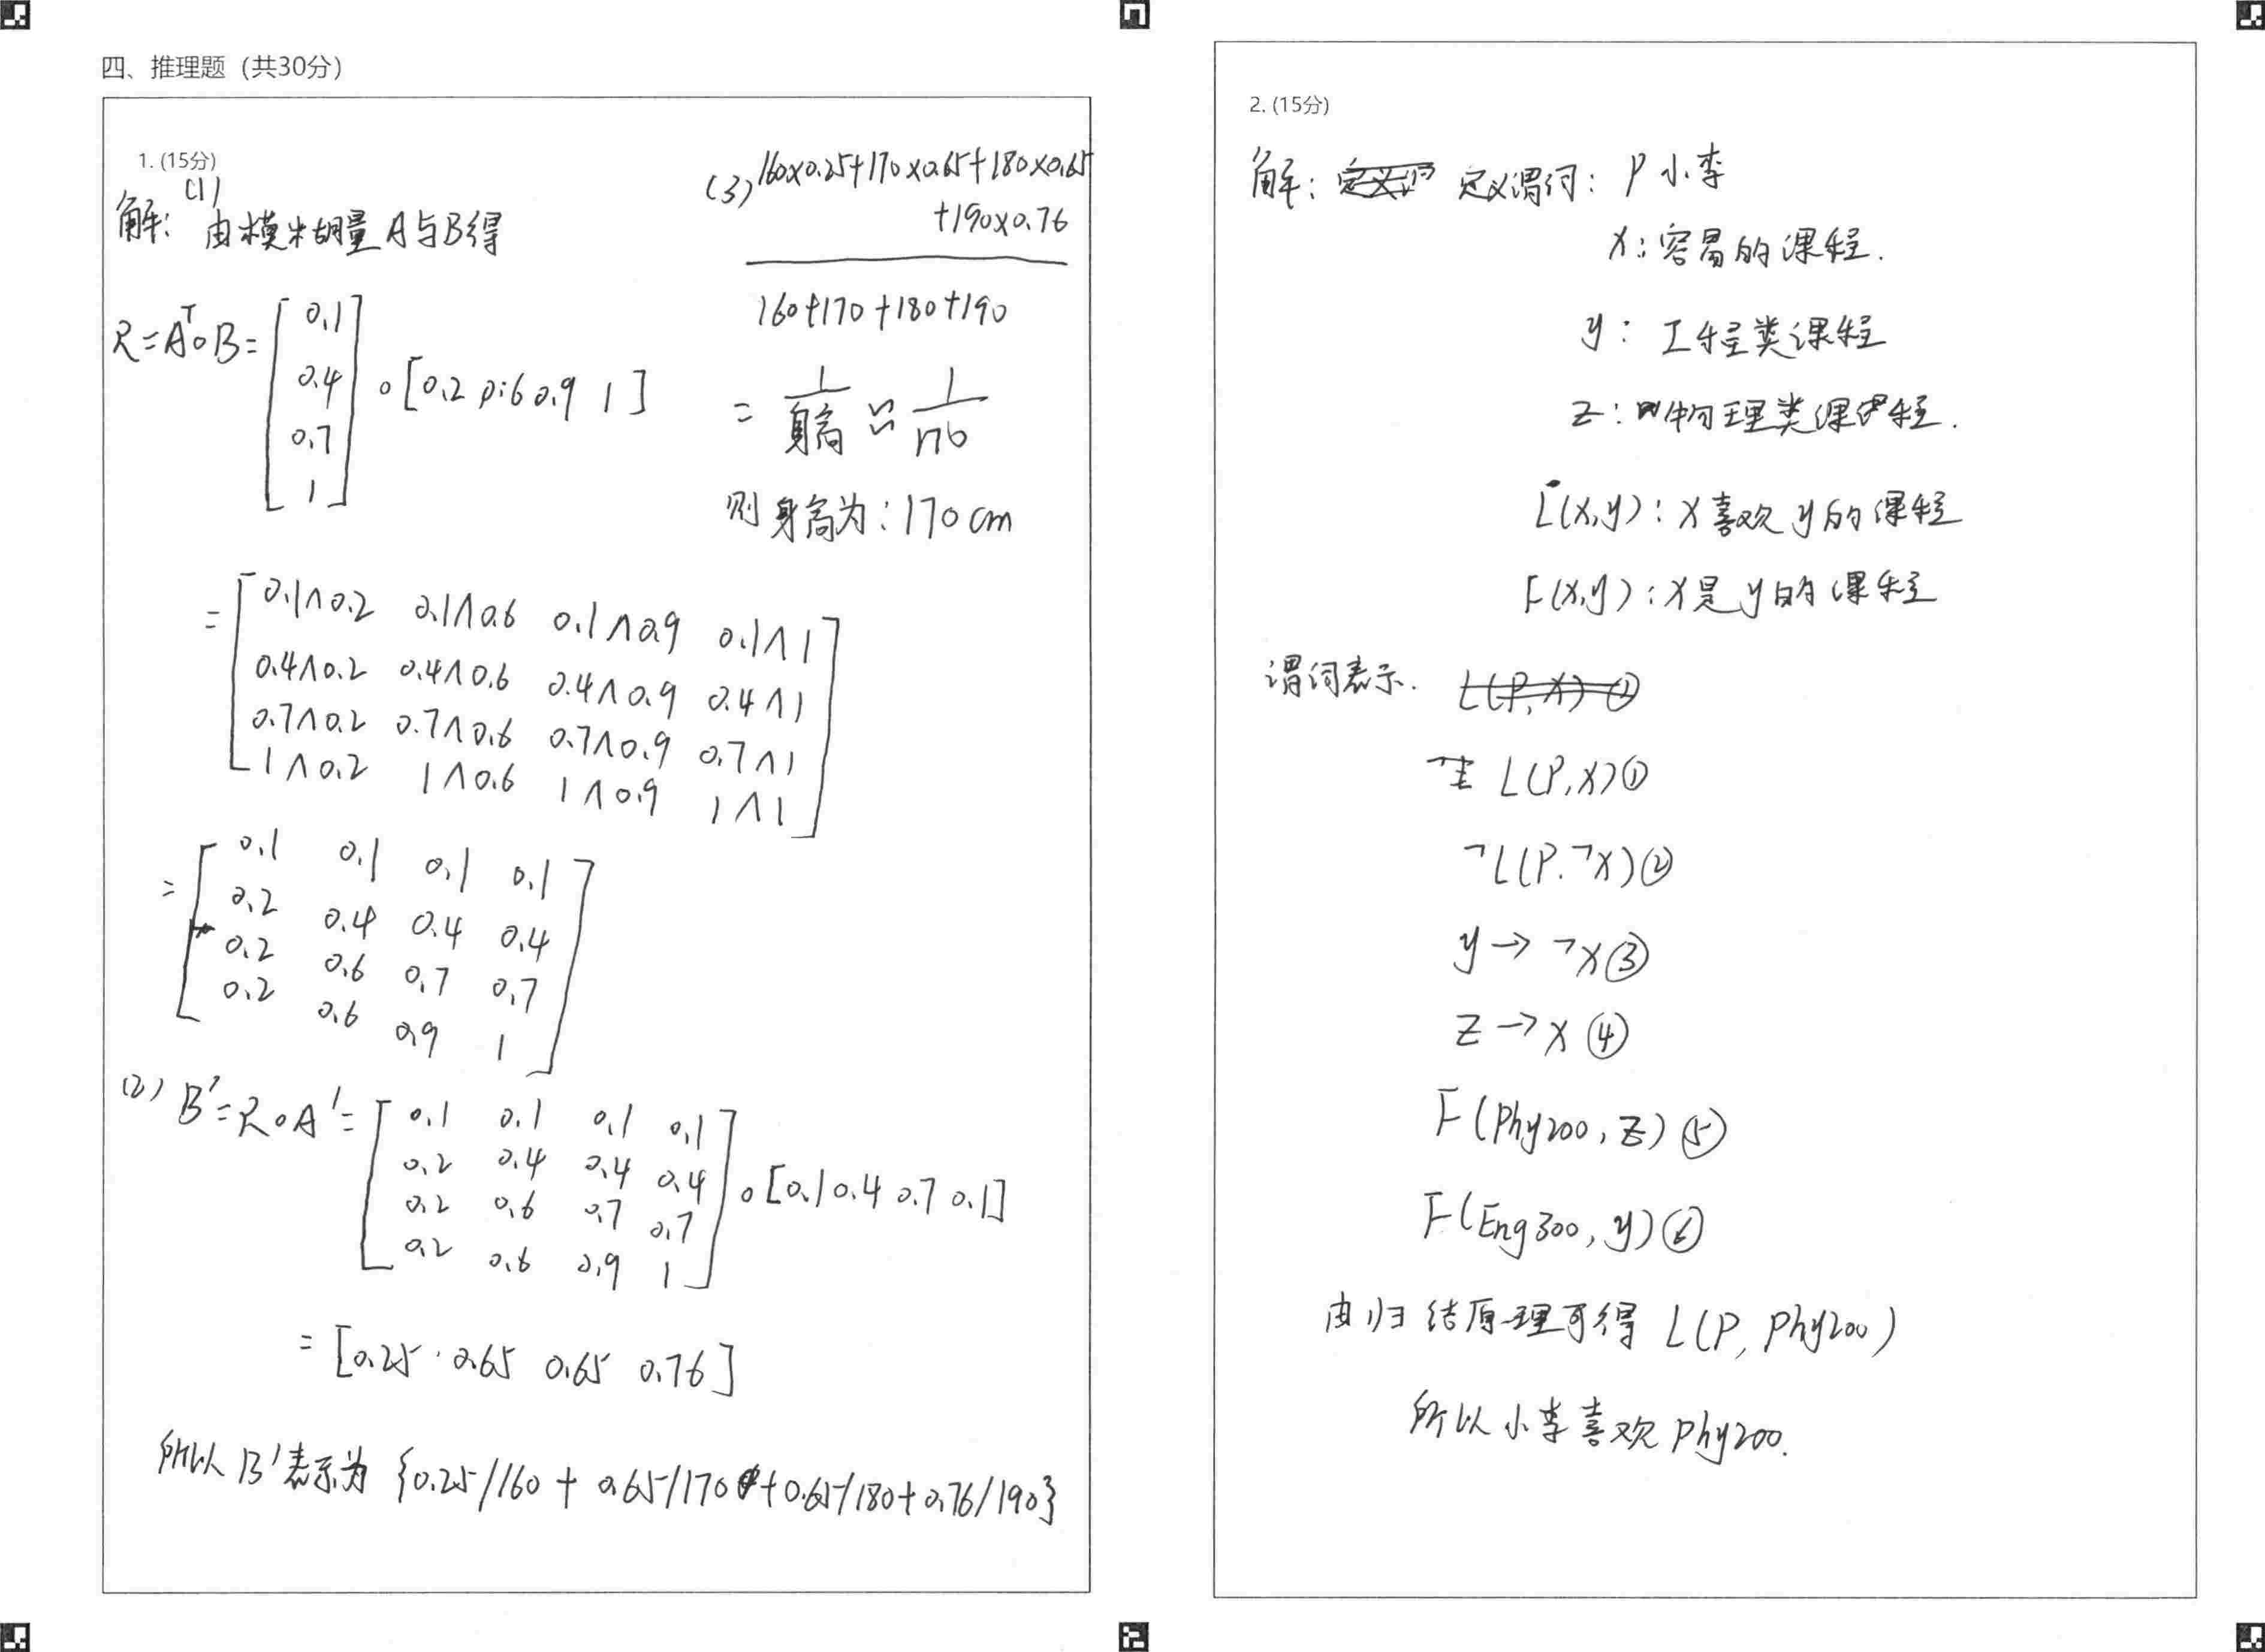 四、推理题（共30分）
1. (15分)
(1)
解: 由模糊量A与B得
R=Aᵀ∘B= [0.1 0.4 0.7 1] ∘ [0.2 0.6 0.9 1]
= [0.1∧0.2 0.1∧0.6 0.1∧0.9 0.1∧1
0.4∧0.2 0.4∧0.6 0.4∧0.9 0.4∧1
0.7∧0.2 0.7∧0.6 0.7∧0.9 0.7∧1
1∧0.2 1∧0.6 1∧0.9 1∧1]
= [0.1 0.1 0.1 0.1
0.2 0.4 0.4 0.4
0.2 0.6 0.7 0.7
0.2 0.6 0.9 1]
(2) B'=R∘A'= [0.1 0.1 0.1 0.1
0.2 0.4 0.4 0.4
0.2 0.6 0.7 0.7
0.2 0.6 0.9 1] ∘ [0.1 0.4 0.7 0.1]
= [0.25 0.65 0.65 0.76]
所以B'表示为 {0.25/160 + 0.65/170 + 0.65/180 + 0.76/190}
(3) 160×0.25+170×0.65+180×0.65
+190×0.76
160+170+180+190
= 1/身高 ≈ 1/170
则身高为: 170cm
2. (15分)
解: 定义谓词: P 小李
X: 容易的课程.
y: 工程类课程
Z: 物理类课程.
L(X,y): X喜欢y的课程
F(X,y): X是y的课程
谓词表示. L(P,X)
L(P,X)①
¬L(P.¬X)②
y→¬X③
Z→X④
F(Phy200, Z)⑤
F(Eng300, y)⑥
由归结原理可得 L(P, Phy200)
所以小李喜欢Phy200.